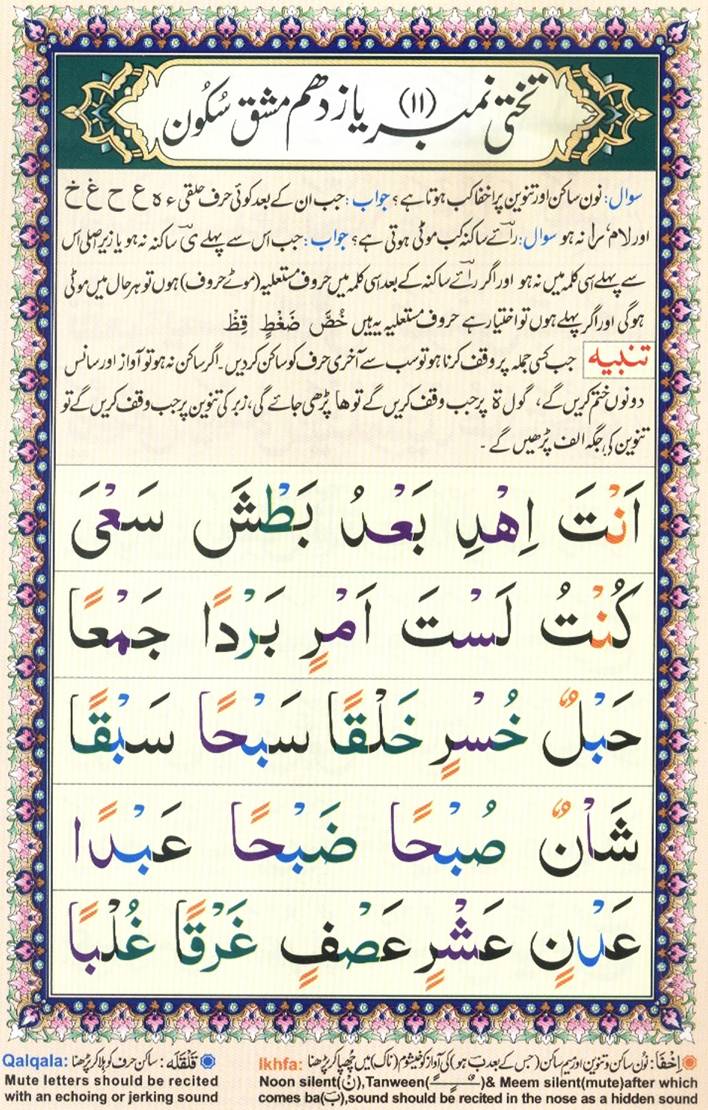 تختی نمبر (۱۱) یازدهم مشق سُکُون
سوال: نون ساکن اور تنوین پر اخفا کب ہوتا ہے؟ جواب: جب ان کے بعد کوئی حرف حلقی ء ہ ع ح غ خ
اور لام را نہ ہو سوال: رائے ساکنہ کب موٹی ہوتی ہے؟ جواب: جب اس سے پہلے یٰ ساکنہ نہ ہو یا زیر اصلی اس
سے پہلے اسی کلمہ میں نہ ہو اور اگر رائے ساکنہ کے بعد اسی کلمہ میں حروف مستعلیہ (موٹے حروف) ہوں تو ہر حال میں موٹی
ہوگی اور اگر پہلے ہوں تو اختیار ہے حروف مستعلیہ یہ ہیں خُصَّ ضَغْطٍ قِظْ
تنبیہ جب کسی جملہ پر وقف کرنا ہو تو سب سے آخری حرف کو ساکن کر دیں۔ اگر ساکن نہ ہو تو آواز اور سانس
دونوں ختم کریں گے، گول ة پر جب وقف کریں گے تو ھا پڑھی جائے گی، زبر کی تنوین پر جب وقف کریں گے تو
تنوین کی جگہ الف پڑھیں گے۔
اَنْتَ اِهْدِ بَعْدُ بَطْشَ سَعْىَ
كُنْتُ لَسْتَ اَمْرٍ بَرْدًا جَمْعًا
حَبْلٌ خُسْرٍ خَلْقًا سَبْحًا سَبْقًا
شَاْنٌ صُبْحًا ضَبْحًا عَبْدًا
عَدْنٍ عَشْرٍ عَصْفٍ غَرْقًا غُلْبًا
اِخفَا: نُون ساکن و تنوین اور میم ساکن (جس کے بعد بَ ہو) کی آواز کو خیشوم (ناک) میں چھپا کر پڑھنا
ikhfa: Noon silent(نْ),Tanween(ـًـٍـٌ)& Meem silent(mute)after which
comes ba(بَ),sound should be recited in the nose as a hidden sound
قَلقَلَه: ساکن حرف کو ہلا کر پڑھنا
Qalqala:
Mute letters should be recited
with an echoing or jerking sound